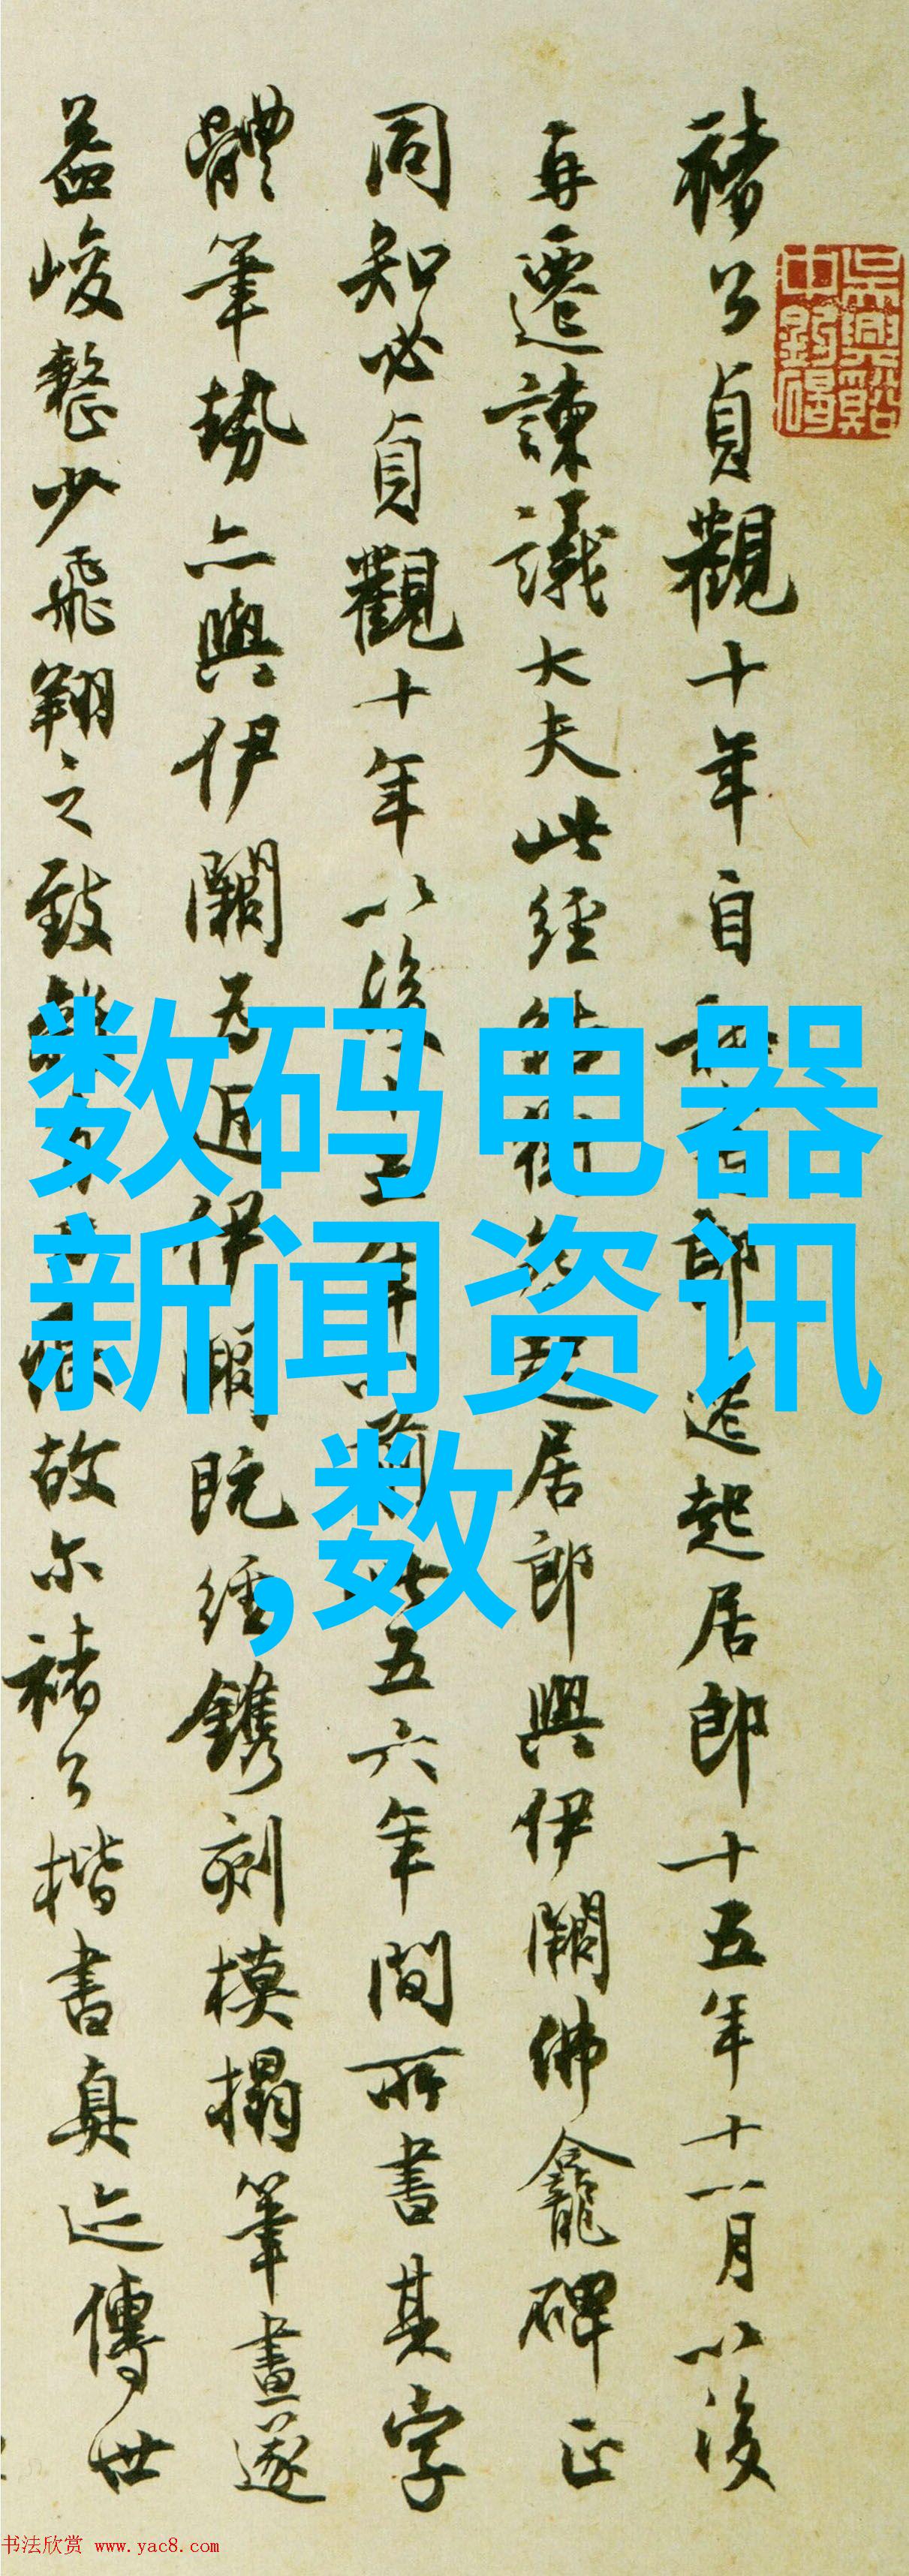 褚公貞觀十年自郎遷起居郎十五年十一月以後
再遷諫議大夫此經居郎與伊闕佛龕碑正
同知必貞觀十年以後十五年前此五六年間所書其字
體筆勢亦與伊闕為近伊闕既經鐫刻模搨筆畫遂
益峻整少飛翔之致故尔褚公楷書真迹傳世
数码电器
新闻资讯
,数
书法欣赏 www.yac8.com